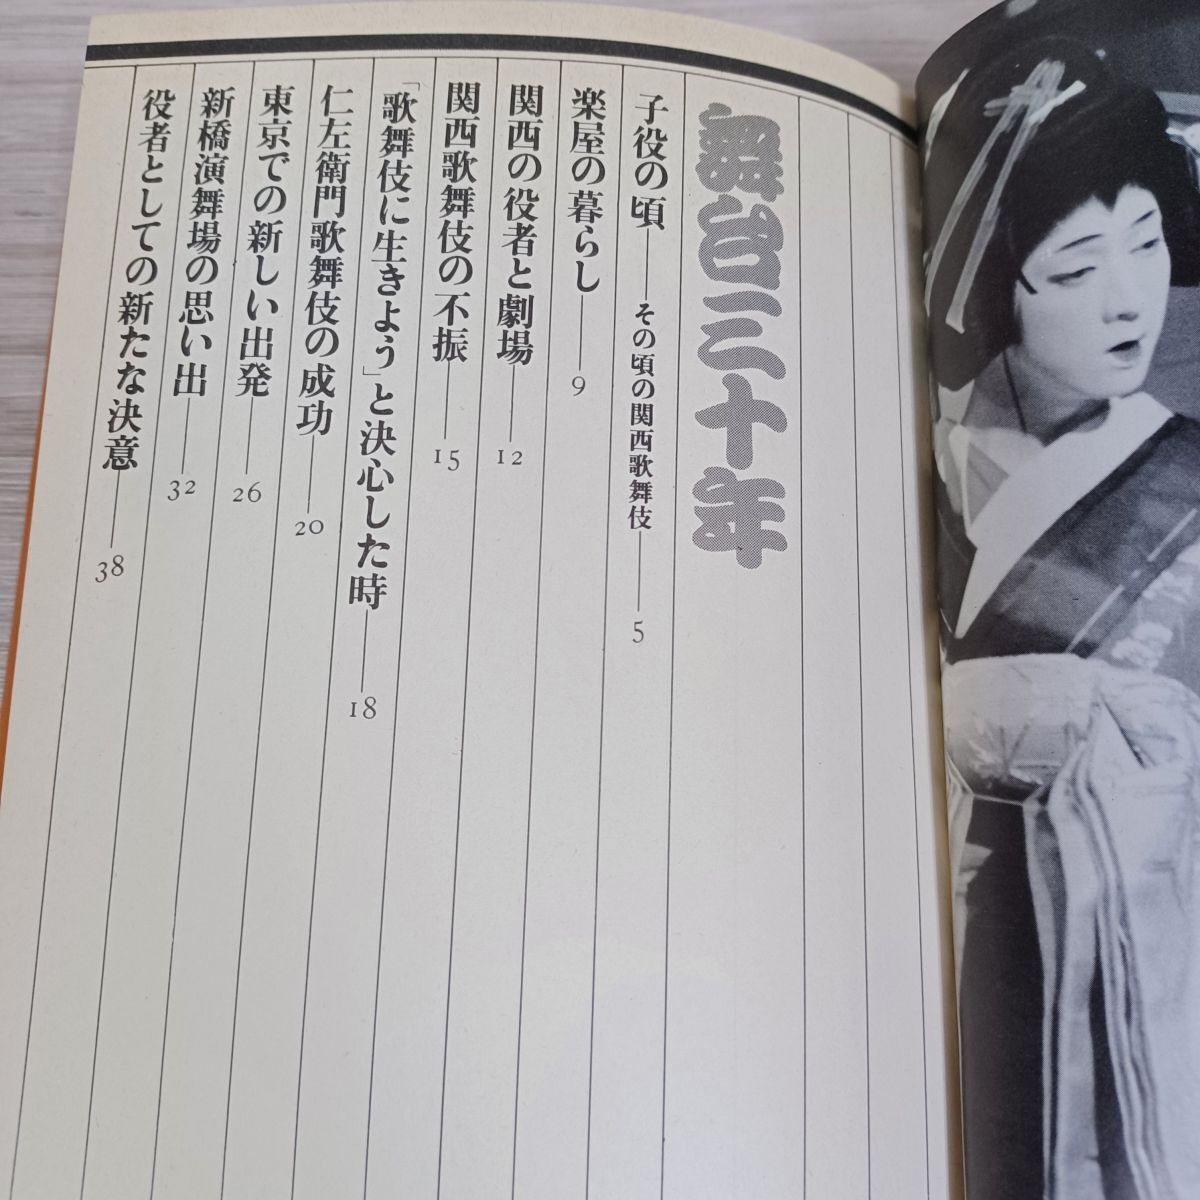 舞台三十年
子役の頃――その頃の関西歌舞伎――5
楽屋の暮らし――9
関西の役者と劇場――12
関西歌舞伎の不振――15
「歌舞伎に生きよう」と決心した時――18
仁左衛門歌舞伎の成功――20
東京での新しい出発――26
新橋演舞場の思い出――32
役者としての新たな決意――38